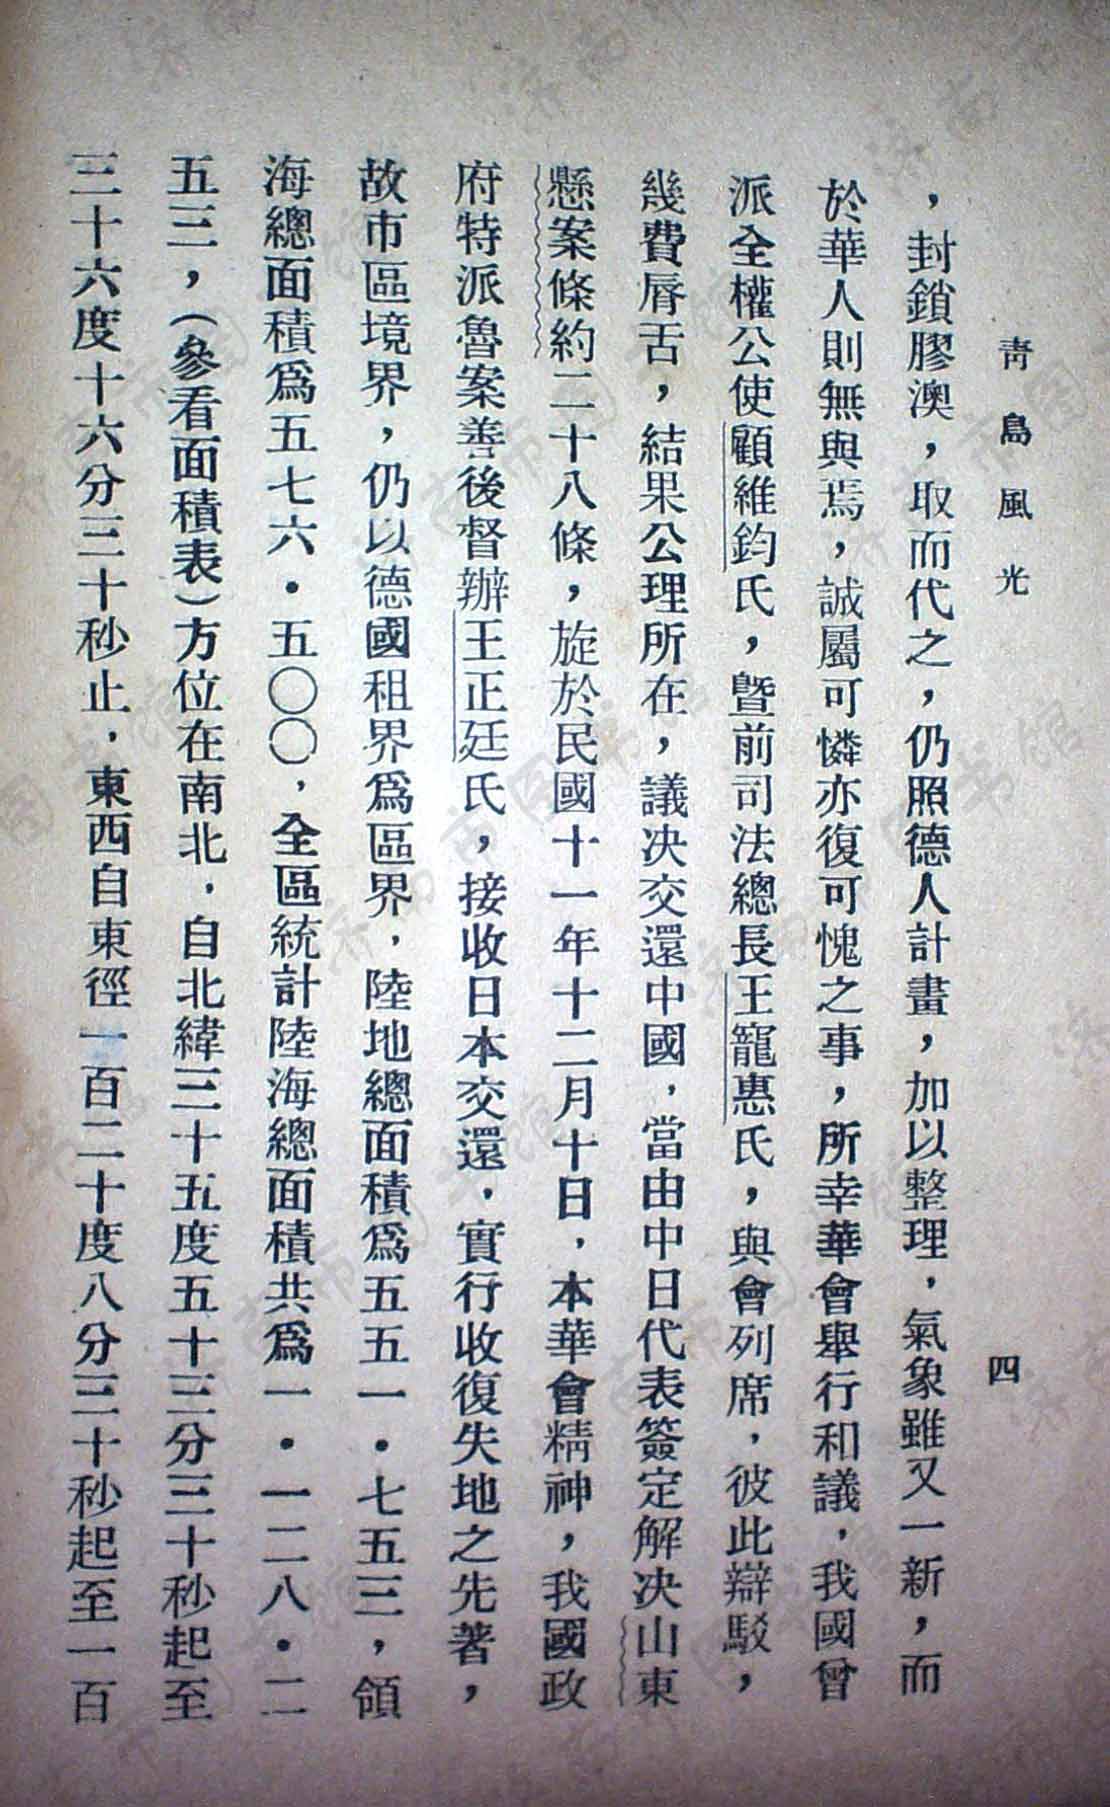 青島風光
四
，封鎖膠澳，取而代之，仍照德人計畫，加以整理，氣象雖又一新，而
於華人則無與焉，誠屬可憐亦復可愧之事，所幸華會舉行和議，我國曾
派全權公使顧維鈞氏，暨前司法總長王寵惠氏，與會列席，彼此辯駁，
幾費脣舌，結果公理所在，議決交還中國，當由中日代表簽定解決山東
懸案條約二十八條，旋於民國十一年十二月十日，本華會精神，我國政
府特派魯案善後督辦王正廷氏，接收日本交還，實行收復失地之先著，
故市區境界，仍以德國租界爲區界，陸地總面積爲五五一·七五三，領
海總面積爲五七六·五〇〇，全區統計陸海總面積共爲一·一二八·二
五三，（參看面積表）方位在南北，自北緯三十五度五十三分三十秒起至
三十六度十六分三十秒止，東西自東徑一百二十度八分三十秒起至一百
济南市图书馆